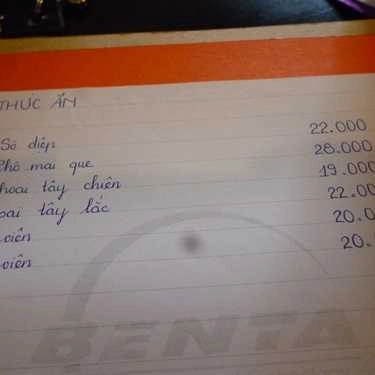 THỨC ĂN
Sò điệp 22.000
Phô mai que 28.000
hoai tây chiên 19.000
oai tây lắc 22.00
viên 20.0
viên 20.
BENTA